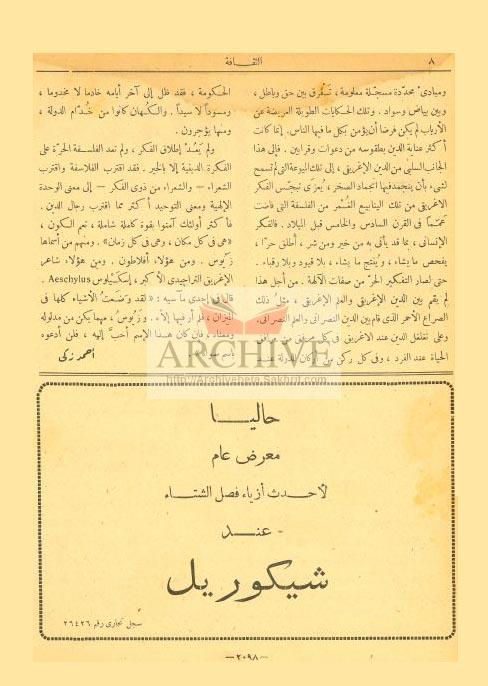 ٨
الثقافة
ومبادئ محدّدة مسجّلة معلومة، تفرق بين حق وباطل،
وبين بياض وسواد. وتلك الحكايات الطويلة العريضة عن
الأرباب لم يكن فرضا أن يؤمن بكل ما فيها الناس. إنما كانت
أكثر عناية الدين بطقوسه من دعوات وقرابين. فإلى هذا
الجانب السلبى من الدين الإغريقى، إلى تلك الميوعة التى لم تسمح
لشىء بأن يتجمد فيها انجماد الصخر، يُعزَى تبجّس الفكر
الإغريقى من تلك الينابيع الثرّة من الفلسفة التى فاضت
عمّتما فى القرن السادس والخامس قبل الميلاد. فالفكر
الإنسانى، بما قد يأتى به من خير ومن شر، أُطلق حرّا،
يفحص ما يشاء، ويُنتج ما يشاء، بلا قيود وبلا رقباء.
حتى لصار التفكير الحرّ من صفات الآلهة. من أجل هذا
لم يقم بين الدين الإغريقى والعلم الإغريقى، مثلُ ذلك
الصراع الأحمر الذى قام بين الدين النصرانى والعلم النصرانى.
وعلى تغلغل الدين عند الإغريق فى كل مرفق من مرافق
الحياة عند الفرد، وفى كل ركن من أركان الدولة عند
الحكومة، فقد ظل إلى آخر أيامه خادما لا مخدوما،
ومسوداً لا سيداً. والكهان كانوا من خُدّام الدولة،
ومنها يؤجرون.
ولم يَعْدُ إطلاق الفكر، ولم تعد الفلسفة الحرّة على
الفكرة الدينية إلا بالخير. فقد اقترب الفلاسفة واقترب
الشعراء — والشعراء من ذوى الفكر — إلى معنى الوحدة
الإلهية ومعنى التوحيد أكثر مما اقترب رجال الدين.
فأكثر أولئك آمنوا بقوة كاملة شاملة، تعم الكون،
«هى فى كل مكان، وهى فى كل زمان». ومنهم من أسماها
زيوس. ومن هؤلاء أفلاطون. ومن هؤلاء شاعر
الإغريق التراجيدى الأكبر، إسكيلوس Aeschylus.
قال فى إحدى مآسيه: «لقد وَضَعتُ الأشياء كلها فى
الميزان، فلم أر فيها إلاّ. وزيوسُ، مهما يكن من مدلوله
ومعناه، فإن كان هذا الإسم أحبَّ إليه، فلن أدعوه
باسم سواه».
أحمد زكى
ARCHIVE
http://Archivebeta.Sakhrit.com
حاليا
معرض عام
لأحدث أزياء فصل الشتاء
- عند
شيكوريل
سجل تجارى رقم ٢٦٤٢٦
—٢٠٩٨—